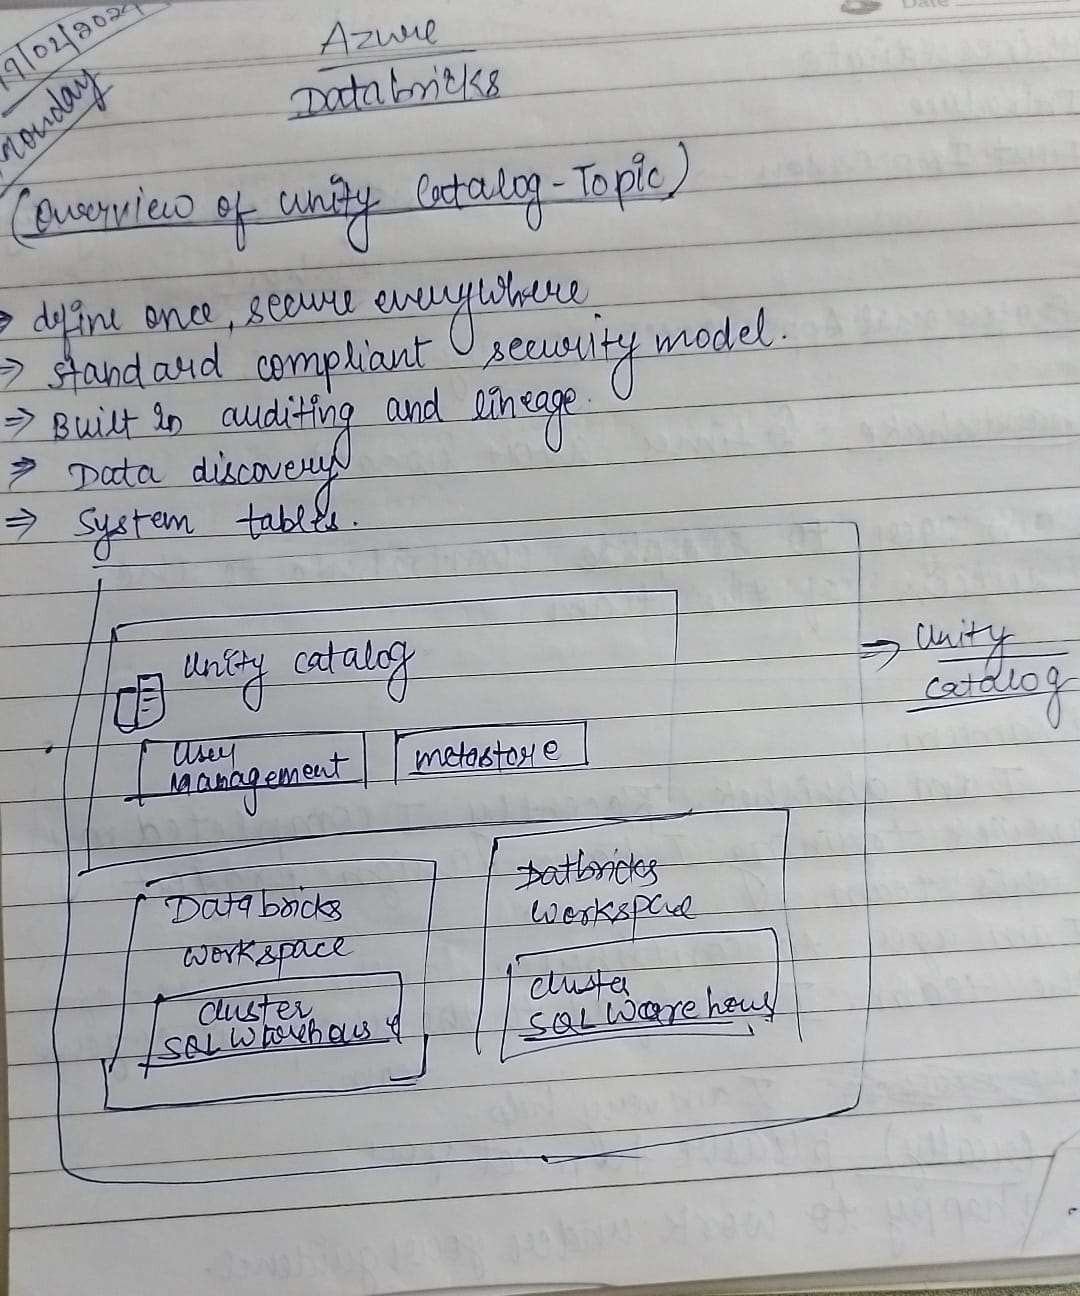 19/02/2024
Monday
Azure
Databricks
(Overview of unity Catalog - Topic)
define once, secure everywhere
⇒ standard compliant security model.
⇒ Built in auditing and lineage.
⇒ Data discovery
⇒ System tables.
unity catalog
User
Management
metastore
⇒ Unity
catalog
Databricks
workspace
cluster
SQL Warehouse
Datbricks
workspace
cluster
SQL Warehous